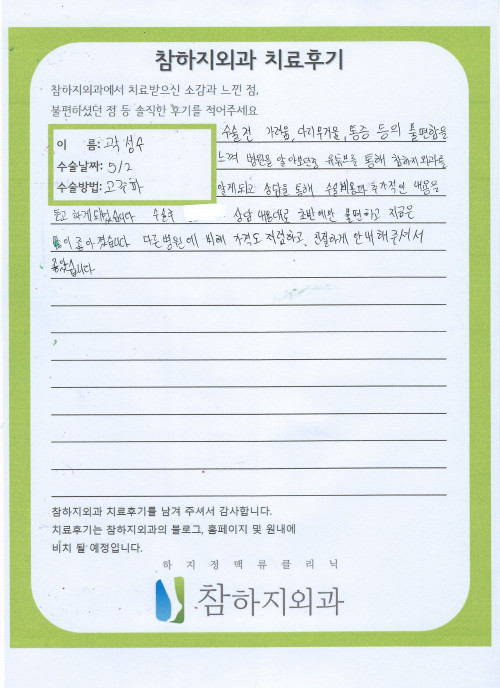 참하지외과 치료후기
참하지외과에서 치료받으신 소감과 느낀 점,
불편하셨던 점 등 솔직한 후기를 적어주세요
이 름: 곽성수
수술날짜: 5/2
수술방법: 고주파
수술전 가려움, 다리무거움, 통증 등의 불편함을
느껴 병원을 알아보던중 유튜브를 통해 참하지외과를
알게되고 상담을 통해 수술비용과 추가적인 내용을
듣고 하게되었습니다 수술후 상담 내용대로 초반에만 불편하고 지금은
많이 좋아졌습니다 다른병원에 비해 가격도 저렴하고, 친절하게 안내해주셔서
좋았습니다
참하지외과 치료후기를 남겨 주셔서 감사합니다.
치료후기는 참하지외과의 블로그, 홈페이지 및 원내에
비치 될 예정입니다.
하지정맥류클리닉
참하지외과